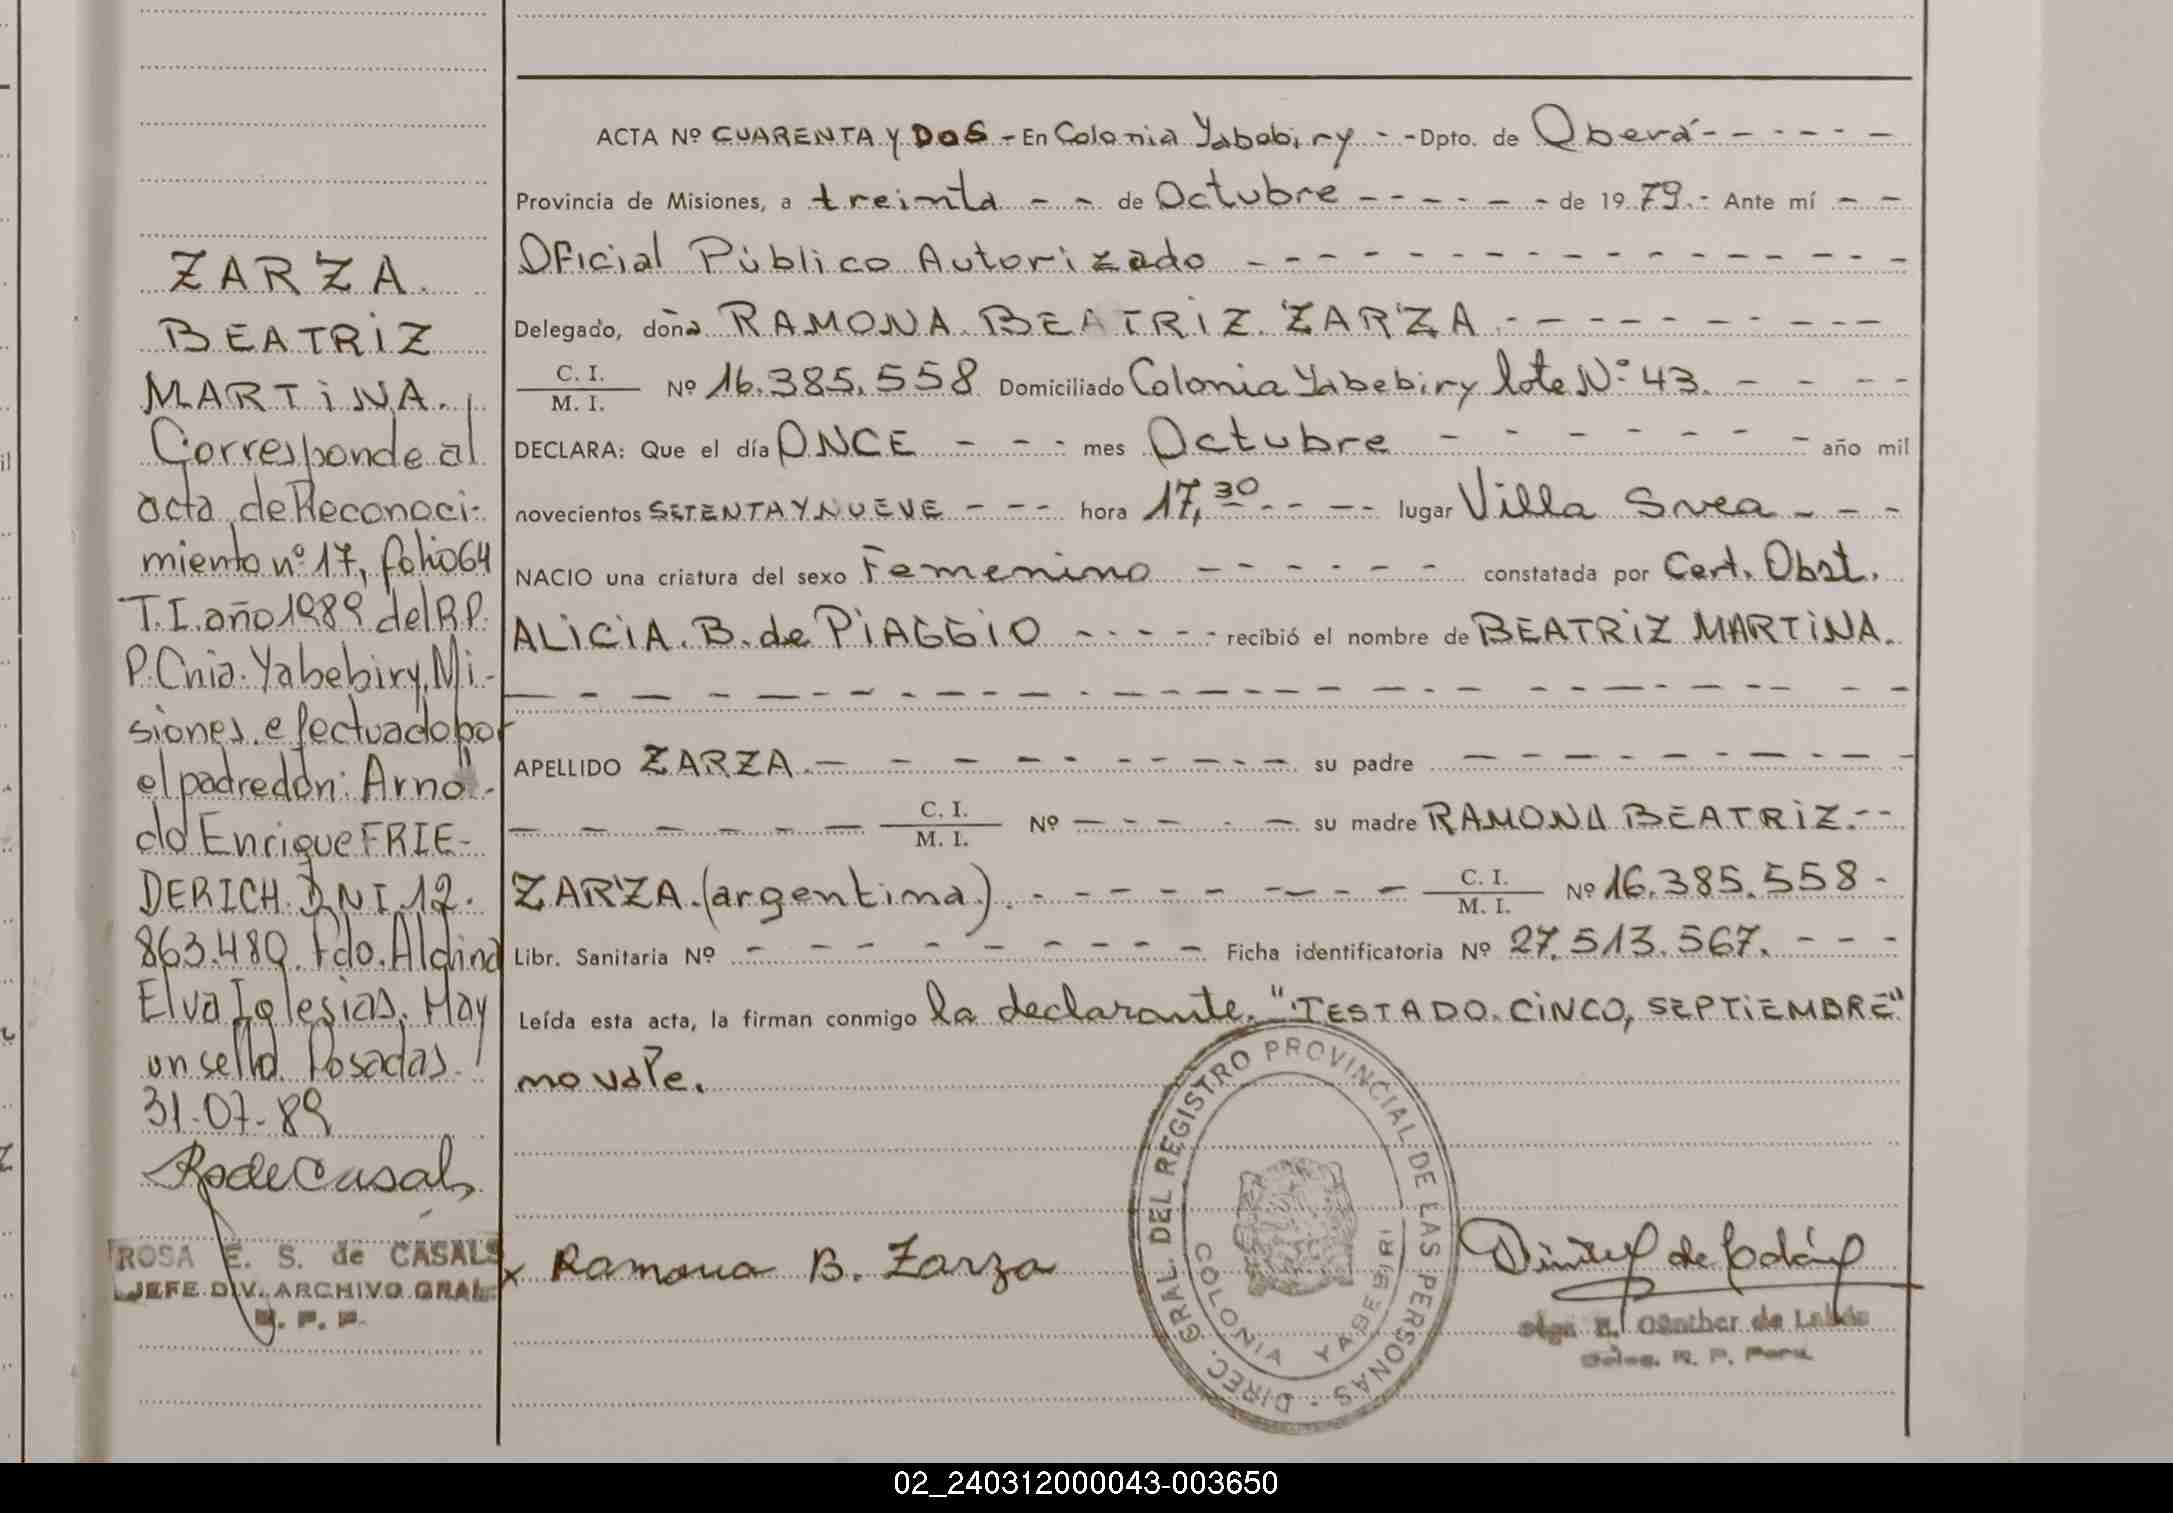 ZARZA.
BEATRIZ
MARTINA.
Corresponde al
acta de Reconoci-
miento nº 17, folio 64
T.I. año 1989 del R.P.
P. Cnia. Yabebiry, Mi-
siones. efectuado por
el padre don: Arno"-
do Enrique FRIE-
DERICH. D N I 12.
863.480. Fdo. Aldina
Elva Iglesias. Hay
un sello. Posadas.
31-07-89
ROSA E. S. de CASALS
JEFE DIV. ARCHIVO GRAL
R. P. P.
ACTA Nº CUARENTA y DOS - En Colonia Yabebiry - - Dpto. de Oberá - - - - - -
Provincia de Misiones, a treinta - - de Octubre - - - - - - de 19 79.- Ante mí - -
Oficial Público Autorizado - - - - - - - - - - - - - - -
Delegado, doña RAMONA BEATRIZ ZARZA - - - - - - - - - -
C. I.
M. I. Nº 16.385.558 Domiciliado Colonia Yabebiry lote Nº 43. - - - -
DECLARA: Que el día ONCE - - - mes Octubre - - - - - - - - año mil
novecientos SETENTA Y NUEVE - - - hora 17,30 - - - - lugar Villa Svea - - -
NACIO una criatura del sexo Femenino - - - - - - constatada por Cert. Obst.
ALICIA. B. de PIAGGIO - - - - - recibió el nombre de BEATRIZ MARTINA.
- - - - - - - - - - - - - - - - - - - - - - - - - -
APELLIDO ZARZA. - - - - - - - - - su padre - - - - - - - - -
- - - - - - C. I.
M. I. Nº - - - - - - su madre RAMONA BEATRIZ. - -
ZARZA. (argentina). - - - - - - - - - C. I.
M. I. Nº 16.385.558 -
Libr. Sanitaria Nº - - - - - - - - - Ficha identificatoria Nº 27.513.567. - - -
Leída esta acta, la firman conmigo la declarante. "TESTADO. CINCO, SEPTIEMBRE"
no vale.
DIREC. GRAL. DEL REGISTRO PROVINCIAL DE LAS PERSONAS
COLONIA YABEBIRI
x Ramona B. Zarza
Günther de
02_240312000043-003650